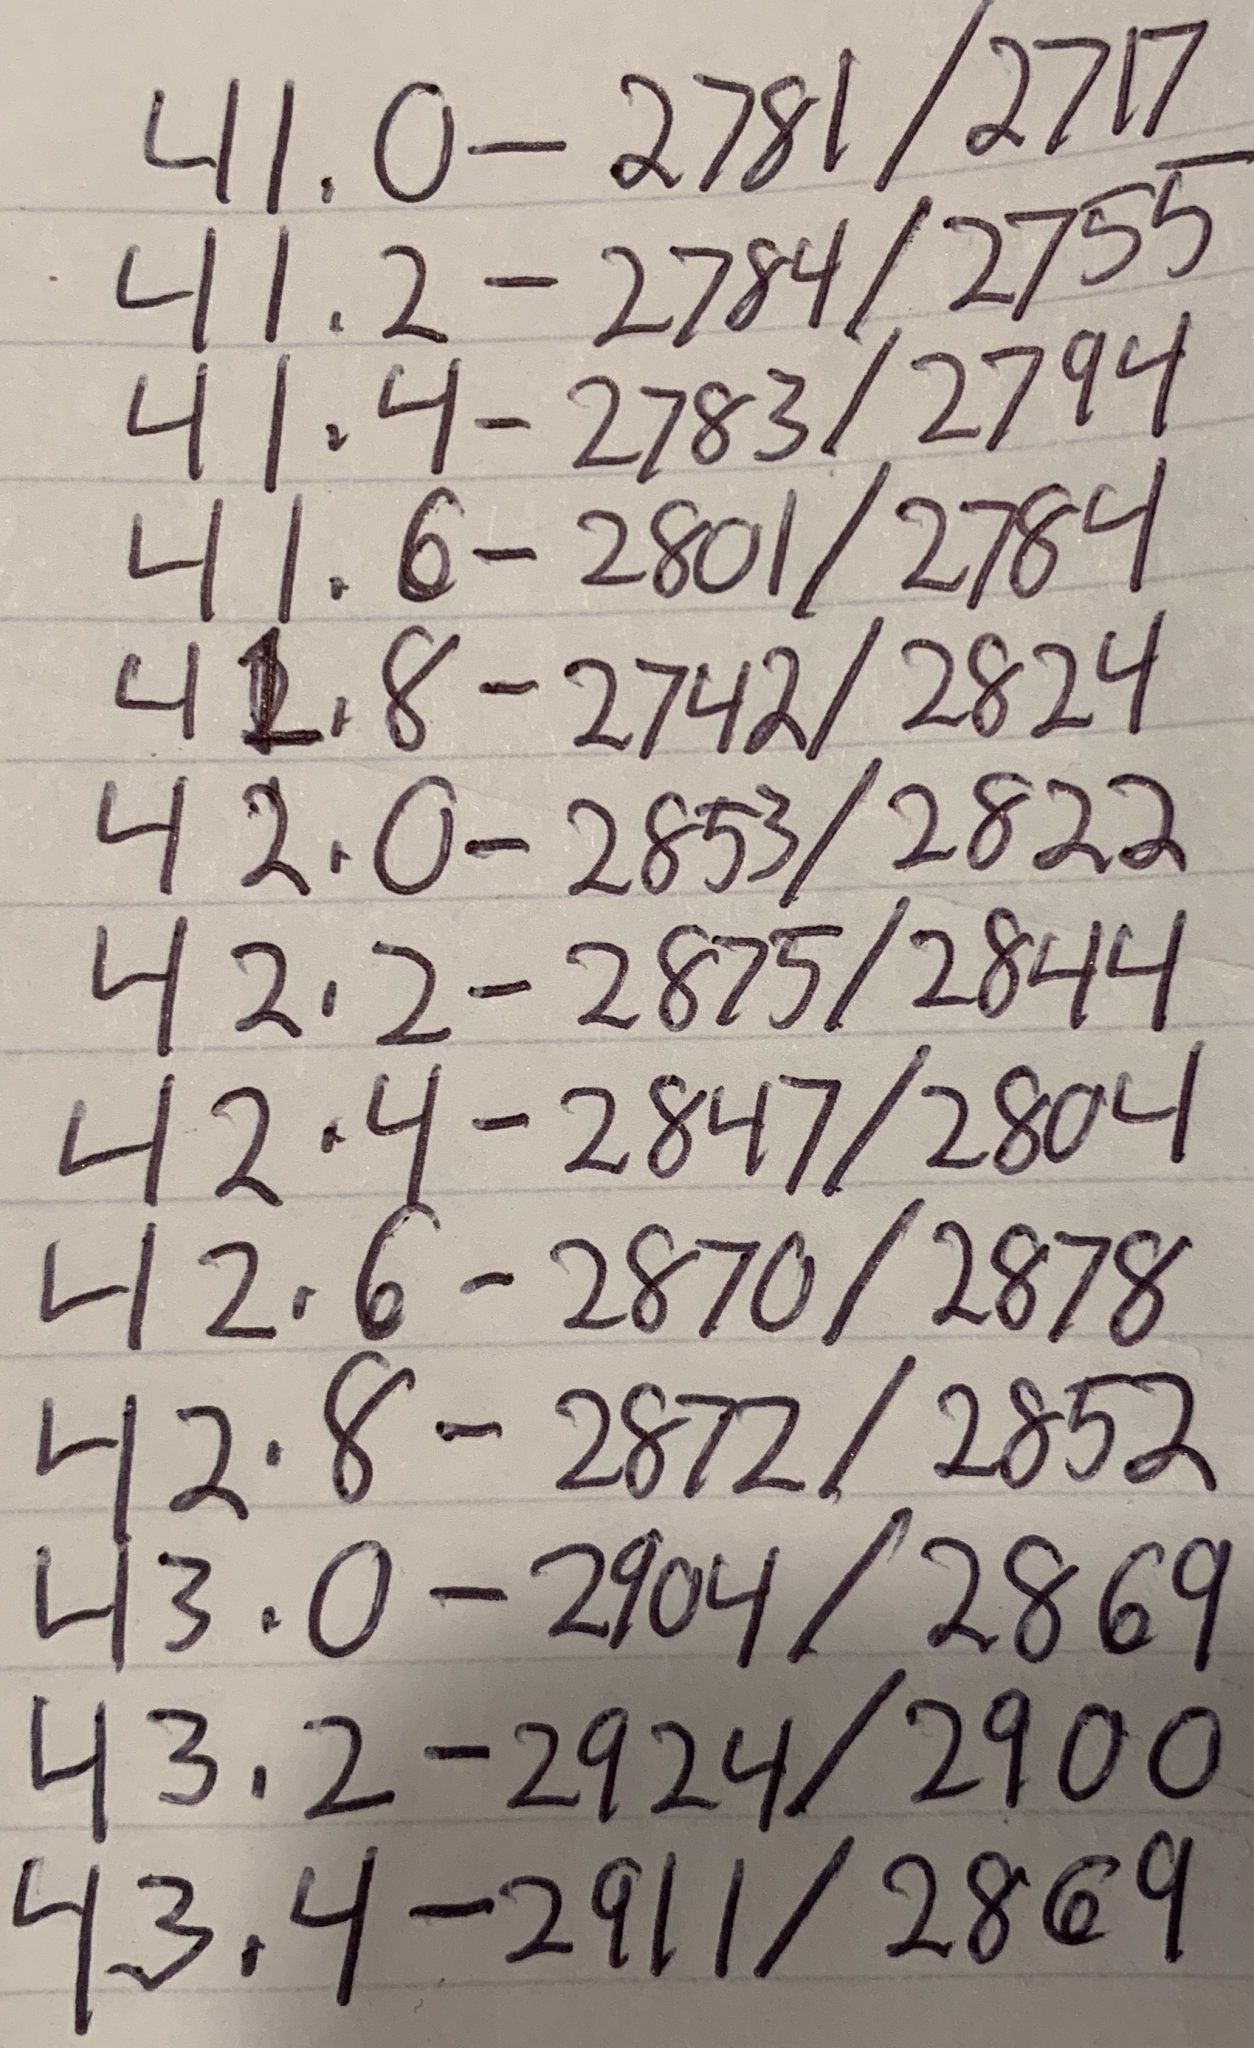 41.0 - 2781/2717
41.2 - 2784/2755
41.4 - 2783/2794
41.6 - 2801/2784
41.8 - 2742/2824
42.0 - 2853/2822
42.2 - 2875/2844
42.4 - 2847/2804
42.6 - 2870/2878
42.8 - 2872/2852
43.0 - 2904/2869
43.2 - 2924/2900
43.4 - 2911/2869